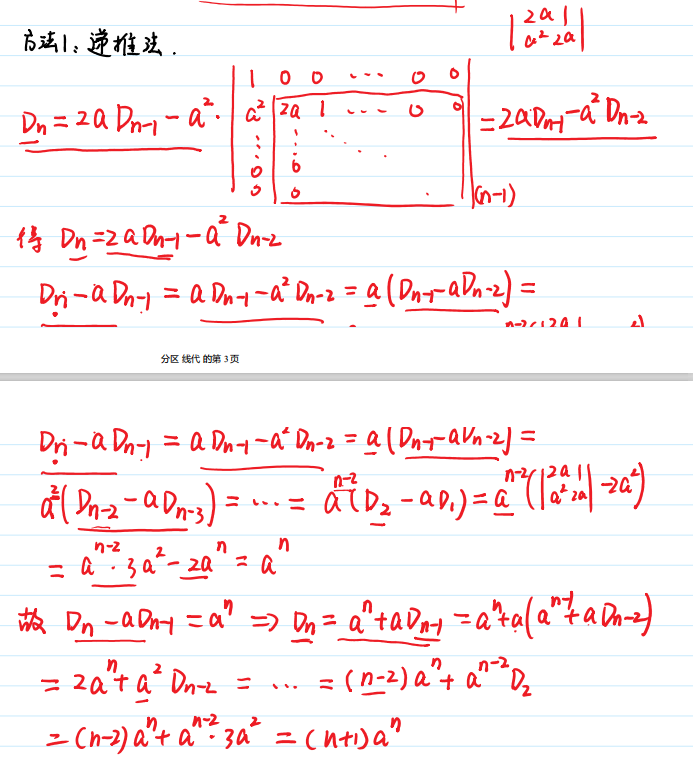 | 2a 1 |
| a² 2a |
方法1: 递推法.
| 1 0 0 ⋯ 0 0 |
D_n = 2a D_{n-1} - a² · | a² 2a 1 ⋯ 0 0 | = 2aD_{n-1} - a² D_{n-2}
⋮ ⋮ ⋱
0 0
0 0 (n-1)
得 D_n = 2a D_{n-1} - a² D_{n-2}
D_n - a D_{n-1} = a D_{n-1} - a² D_{n-2} = a (D_{n-1} - a D_{n-2}) =
分区 线代 的第 3 页
D_n - a D_{n-1} = a D_{n-1} - a² D_{n-2} = a (D_{n-1} - a D_{n-2}) =
a² (D_{n-2} - a D_{n-3}) = ⋯ = a^{n-2} (D_2 - a D_1) = a^{n-2} (| 2a 1 | - 2a²)
| a² 2a |
= a^{n-2} · 3a² - 2a^n = a^n
故 D_n - aD_{n-1} = a^n ⇒ D_n = a^n + aD_{n-1} = a^n + a (a^{n-1} + a D_{n-2})
= 2a^n + a² D_{n-2} = ⋯ = (n-2) a^n + a^{n-2} D_2
= (n-2) a^n + a^{n-2} · 3a² = (n+1) a^n